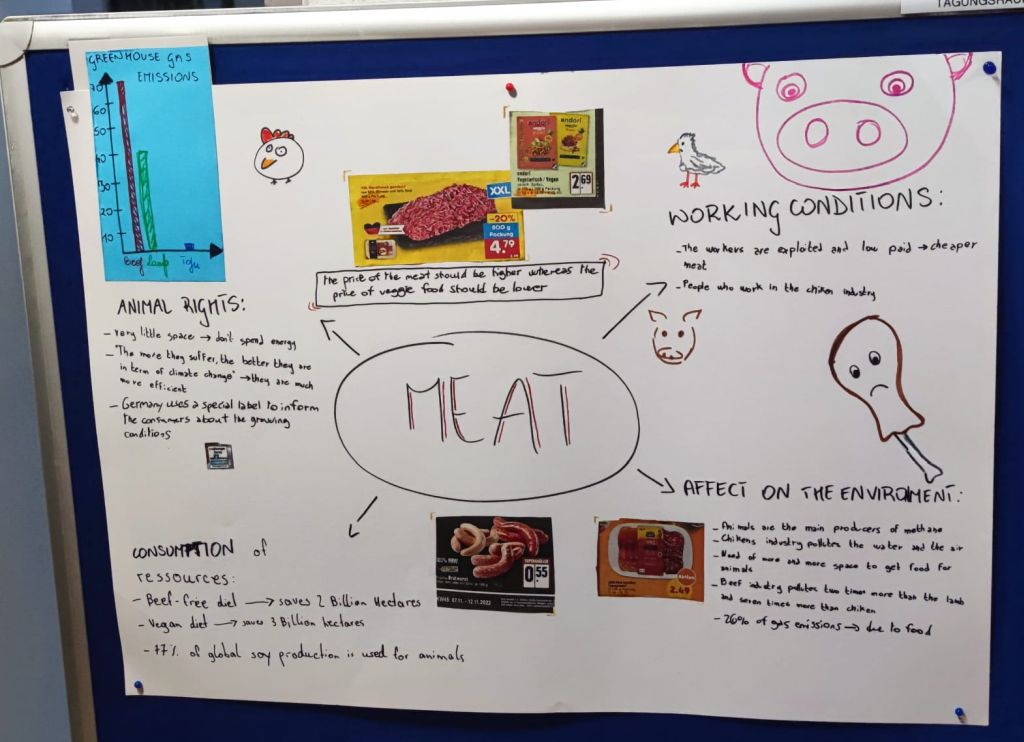 TAGUNGSRAU
GREENHOUSE GAS
EMISSIONS
70
60
50
40
30
20
10
Beef Lamb Tofu
endori
endori
endori
Vegetarisch / Vegan
2.69
XXL
-20%
800 g
Packung
4.79
The price of the meat should be higher whereas the
price of veggie food should be lower
WORKING CONDITIONS:
- The workers are exploited and low paid → cheaper
meat
- People who work in the chiken industry
ANIMAL RIGHTS:
- very little space → don't spend energy
- "The more they suffer, the better they are
in term of climate change" → they are much
more efficient
- Germany uses a special label to inform
the consumers about the growing
conditions
MEAT
CONSUMPTION of
ressources:
- Beef-free diet → saves 2 Billion Hectares
- Vegan diet → saves 3 Billion hectares
- 77% of global soy production is used for animals
Bratwurst
0.55
KW45 07.11. - 12.11.2022
Aktion
2.49
AFFECT ON THE ENVIROMENT:
- Animals are the main producers of methane
- Chikens industry pollutes the water and the air
- Need of more and more space to get food for
animals
- Beef industry pollutes two times more than the lamb
and seven times more than chiken
- 26% of gas emissions → due to food